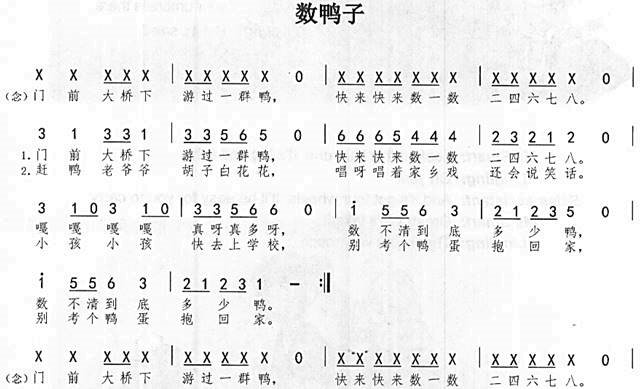 数鸭子
X X X X X | X X X X X 0 | X X X X X X X | X X X X X 0 |
(念)门 前 大 桥 下 游 过 一 群 鸭, 快 来 快 来 数 一 数 二 四 六 七 八。
3 1 3 3 1 | 3 3 5 6 5 0 | 6 6 6 5 4 4 4 | 2 3 2 1 2 0 |
1.门 前 大 桥 下 游 过 一 群 鸭, 快 来 快 来 数 一 数 二 四 六 七 八。
2.赶 鸭 老 爷 爷 胡 子 白 花 花, 唱 呀 唱 着 家 乡 戏 还 会 说 笑 话。
3 1 0 3 1 0 | 3 3 5 6 6 0 | i 5 5 6 3 | 2 1 2 3 5 0 |
嘎 嘎 嘎 嘎 真 呀 真 多 呀, 数 不 清 到 底 多 少 鸭,
小 孩 小 孩 快 去 上 学 校, 别 考 个 鸭 蛋 抱 回 家,
i 5 5 6 3 | 2 1 2 3 1 – :‖
数 不 清 到 底 多 少 鸭。
别 考 个 鸭 蛋 抱 回 家。
X X X X X | X X X X X 0 | X X X X X X X | X X X X X 0 |
(念)门 前 大 桥 下 游 过 一 群 鸭, 快 来 快 来 数 一 数 二 四 六 七 八。